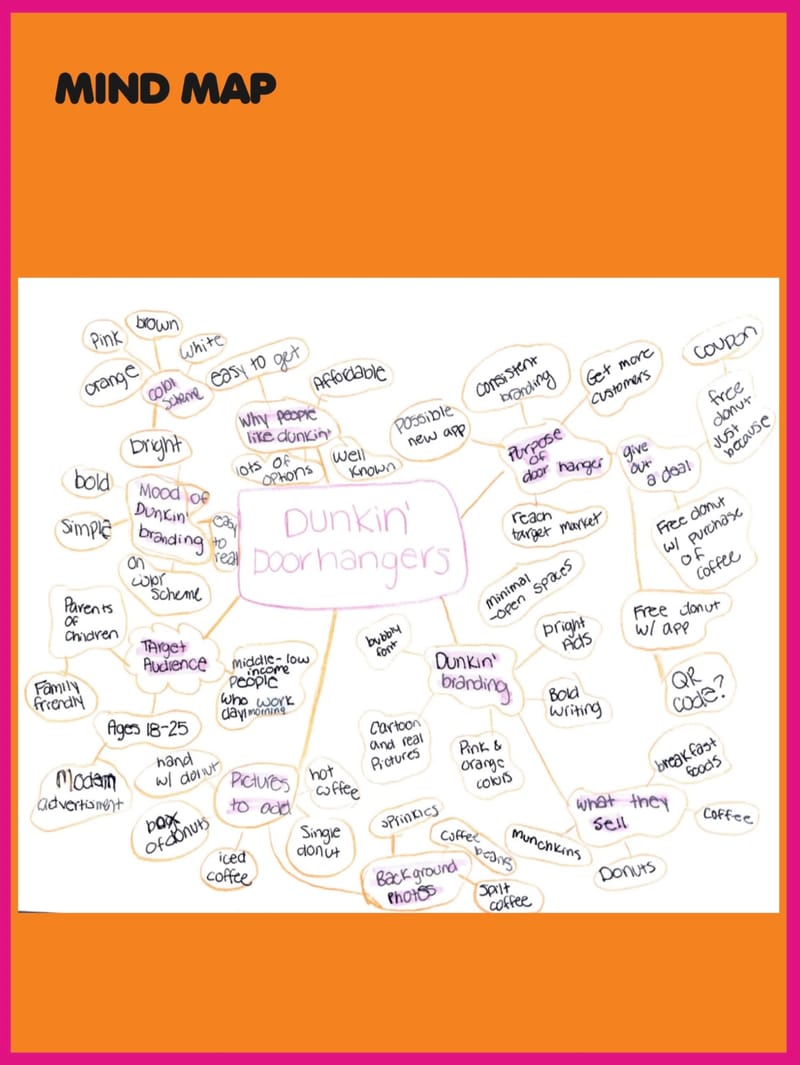 MIND MAP
Pink
brown
white
orange
color
scheme
easy to get
Affordable
Why people
like dunkin'
lots of
options
Well
Known
bright
bold
Simple
Mood of
Dunkin'
branding
easy
to
read
on
color
scheme
Dunkin'
Doorhangers
Possible
new app
Consistent
branding
Get more
customers
Purpose
of
door hanger
reach
target market
give
out
a deal
Coupon
free
donut
just
because
Free donut
w/ purchase
of
coffee
Free donut
w/ app
QR
code?
Parents
of
Children
Family
friendly
Target
Audience
middle-low
income
People
who work
day/morning
Ages 18-25
Modern
advertisment
minimal
-open spaces
bubbly
font
Dunkin'
branding
bright
Ads
Bold
Writing
Cartoon
and real
Pictures
Pink &
orange
colors
hand
w/ donut
box
of donuts
Pictures
to add
hot
coffee
iced
coffee
Single
donut
sprinkles
Coffee
beans
Background
Photos
Spilt
coffee
what they
sell
breakfast
foods
Coffee
munchkins
Donuts